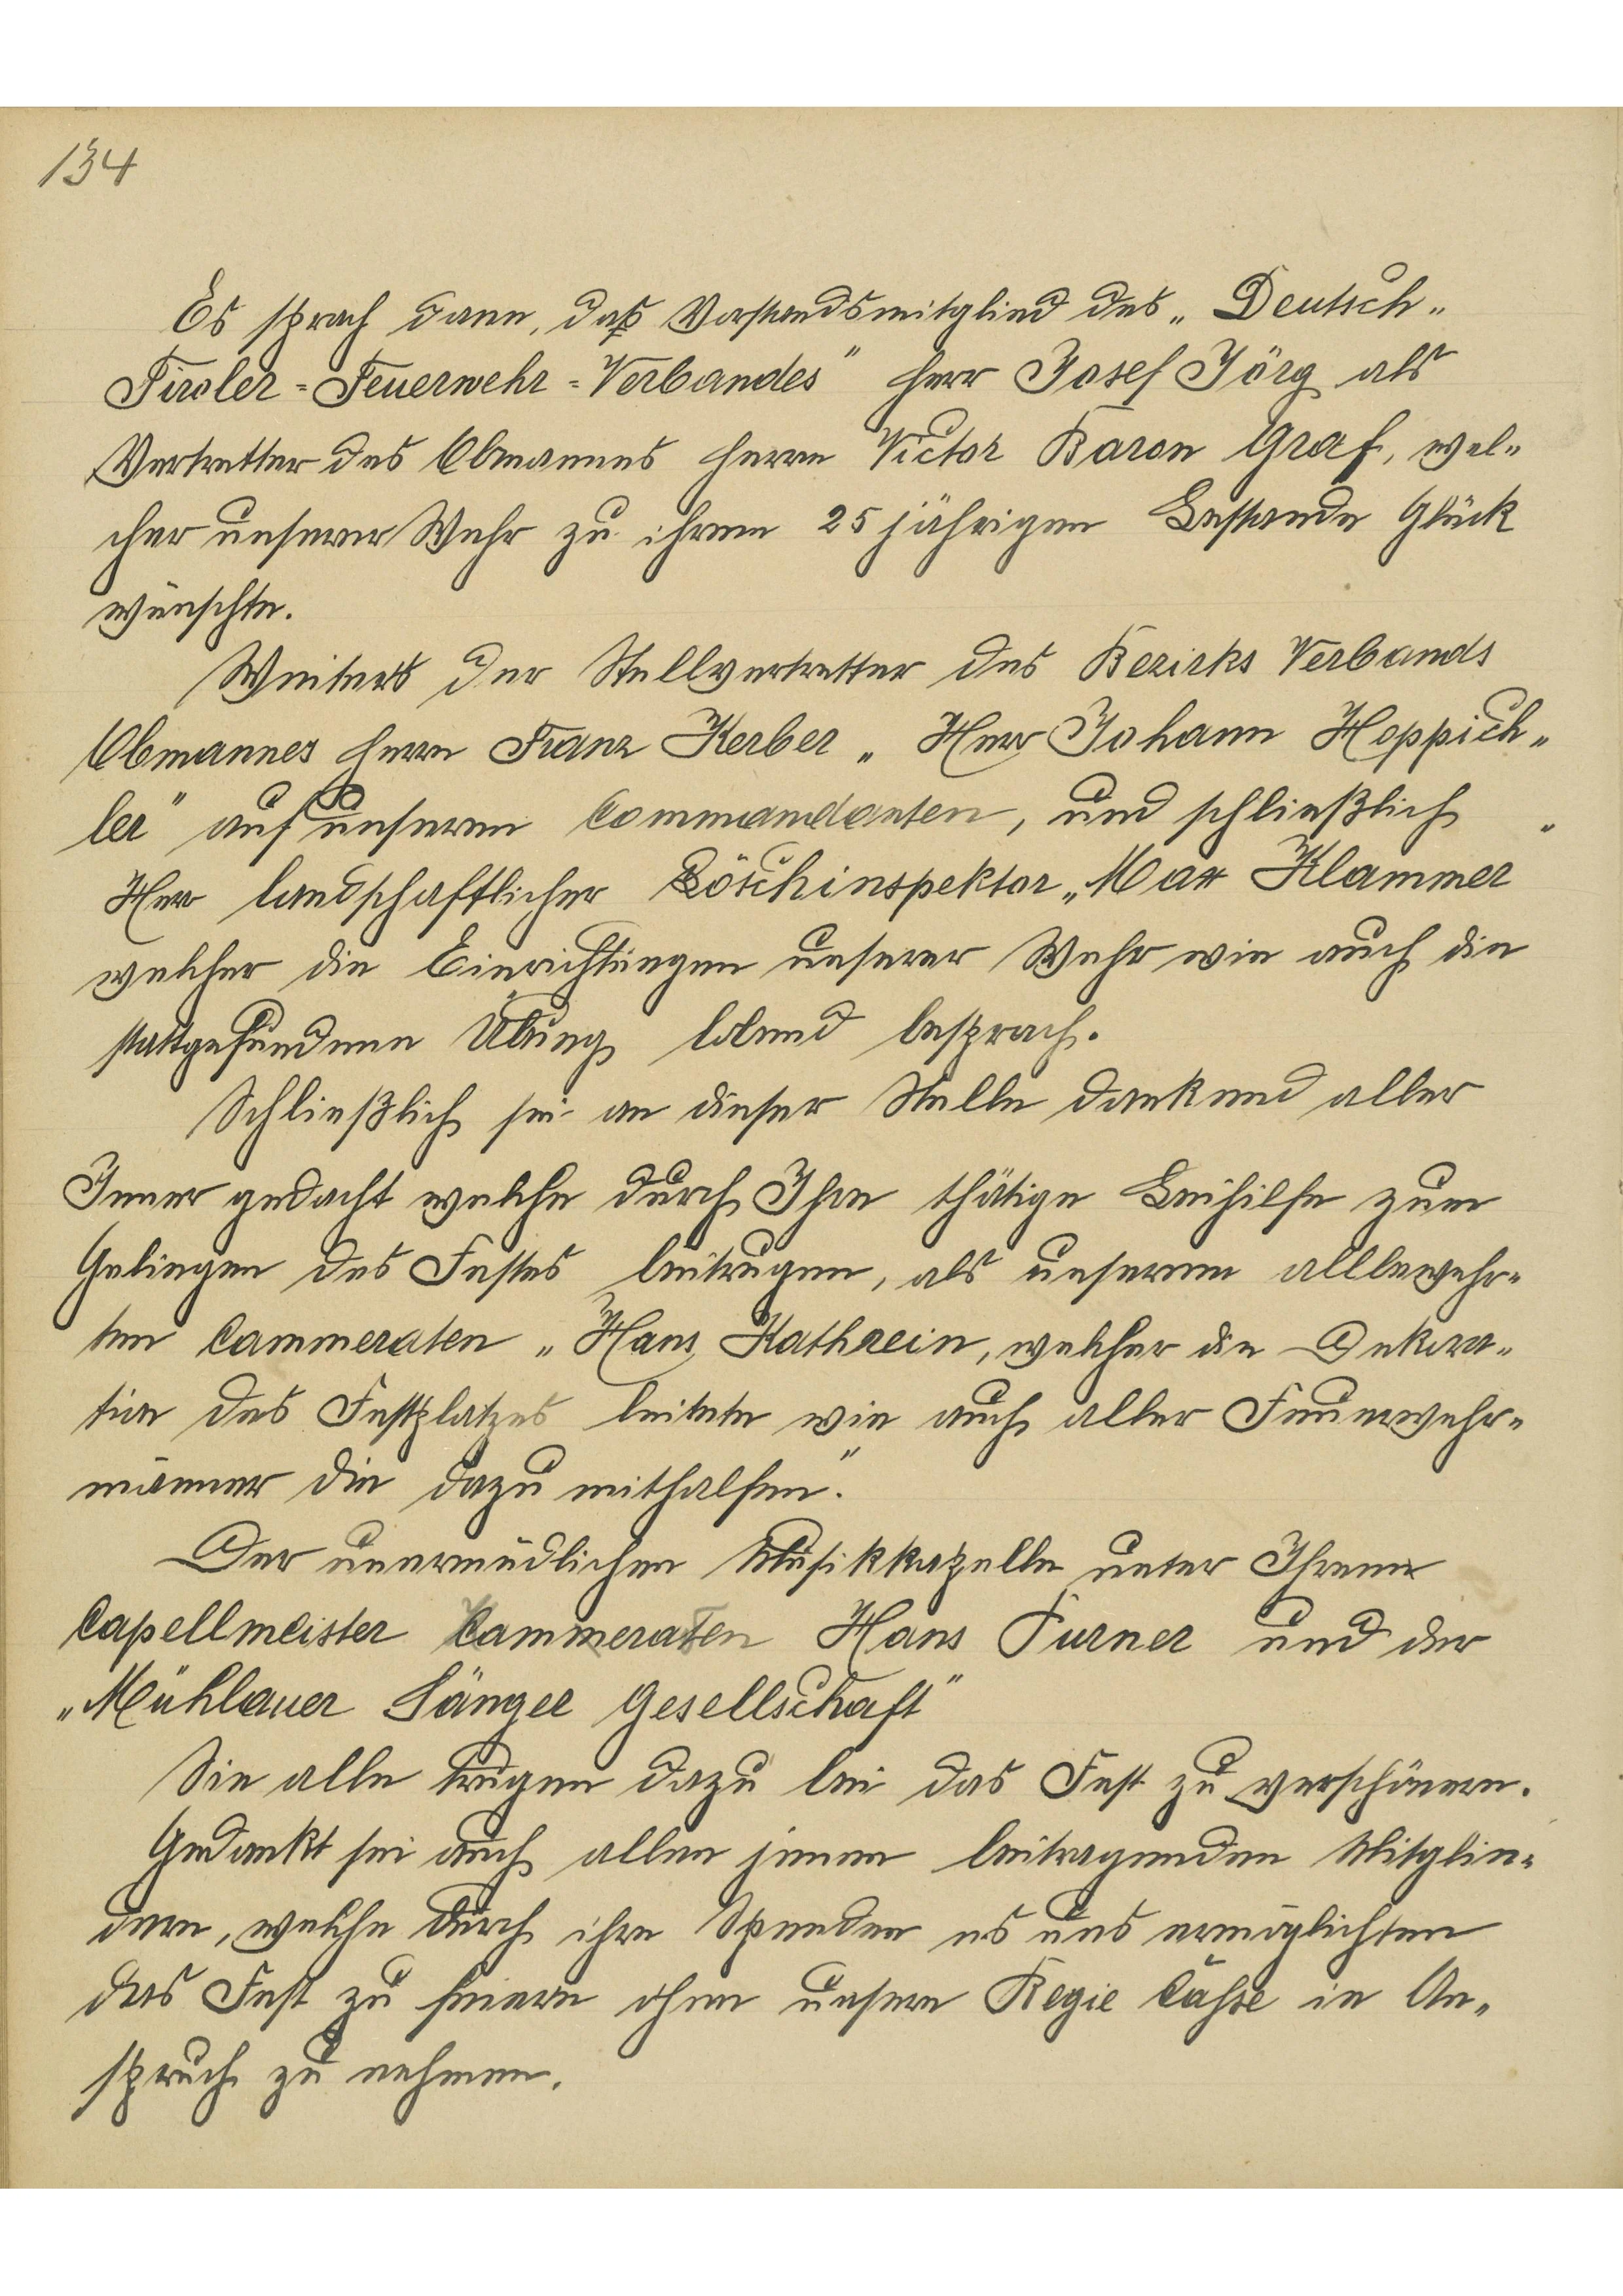 134
Es sprach dann, daß Vorstandsmitglied des „Deutsch-
Tiroler-Feuerwehr-Verbandes" Herr Josef Jörg als
Vertretter des Obmannes Herrn Victor Baron Graf, wel-
cher unserer Wehr zu ihrem 25 jährigen Bestande Glück
wünschte.
Weiters der Stellvertretter des Bezirks Verbands
Obmannes Herrn Franz Kerber „Herr Johann Hoppich-
ler" auf unseren Commandanten, und schließlich
Herr landschaftlicher Löschinspektor „Max Klammer
welcher die Einrichtungen unserer Wehr wie auch die
stattgefundene Übung lobend besprach.
Schließlich sei an dieser Stelle dankend aller
Jener gedacht welche durch Ihre thätige Beihilfe zum
Gelingen des Festes beitrugen, als unserem allbewehr-
ten Cammeraten „Hans Kathrein, welcher die Dekora-
tion des Festplatzes leitete wie auch aller Feuerwehr-
männer die dazu mithalfen."
Der unermüdlichen Musikkapelle unter Ihrem
Capellmeister Kammeraten Hans Purner und der
„Mühlauer Sänger Gesellschaft"
Sie alle trugen dazu bei das Fest zu verschönern.
Gedankt sei auch allen jenen beitragenden Mitglie-
dern, welche durch ihre Spenden es uns ermöglichten
das Fest zu feiern ohne unsere Regie Cahse in An-
spruch zu nehmen.